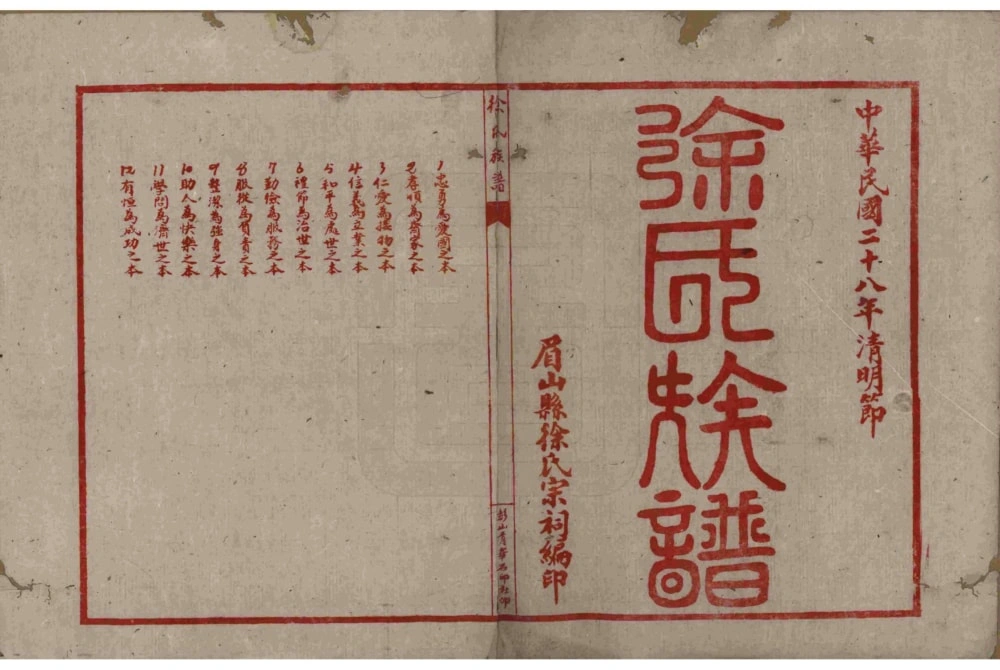 中華民國二十八年清明節
徐氏族譜
眉山縣徐氏宗祠編印
徐氏族譜
彭山青華石印社印
1忠勇為愛國之本
2孝順為齊家之本
3仁愛為接物之本
4信義為立業之本
5和平為處世之本
6禮節為治世之本
7勤儉為服務之本
8服從為負責之本
9整潔為強身之本
10助人為快樂之本
11學問為濟世之本
12有恒為成功之本